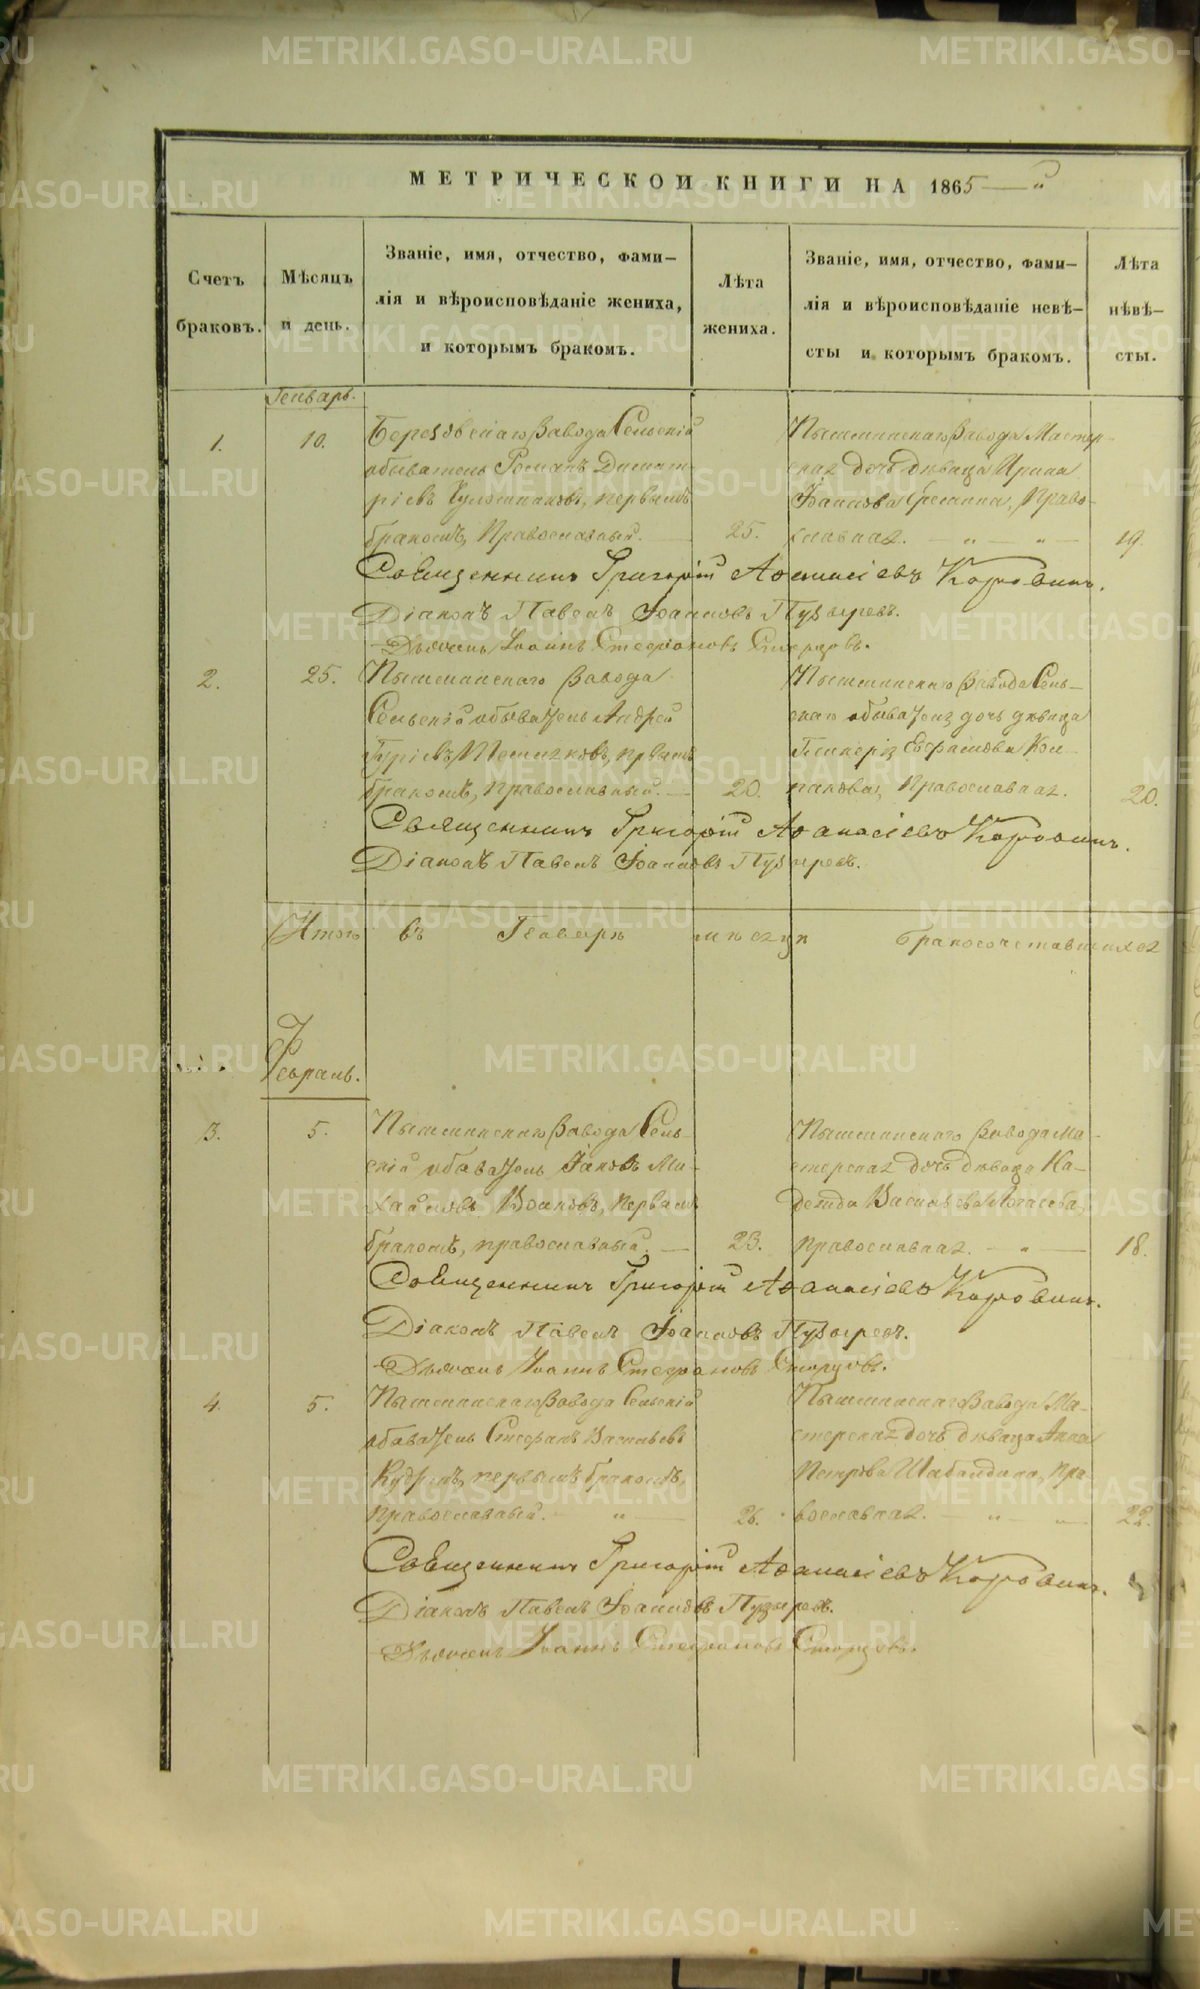 МЕТРИЧЕСКОЙ КНИГИ НА 1865
Счетъ браковъ.
Мѣсяцъ и день.
Званіе, имя, отчество, фами-
лія и вѣроисповѣданіе жениха,
и которымъ бракомъ.
Лѣта жениха.
Званіе, имя, отчество, фами-
лія и вѣроисповѣданіе невѣ-
сты и которымъ бракомъ.
Лѣта нѣвѣ-
сты.
Генварь.
1.
10.
Березовскаго Завода Сельскій
обыватель Романъ Димит-
ріевъ первымъ
бракомъ, Православный.
25.
Пышминскаго Завода Мастер-
ская дочь дѣвица Ирина
Іоаннова Право-
славная.
19.
Священникъ Григорій Аѳанасіевъ Коровинъ.
Діаконъ Павелъ Іоанновъ Пузыревъ.
Дьячекъ Іоаннъ Стефановъ
2.
25.
Пышминскаго Завода
Сельскій обыватель Андрей
Гурьевъ первымъ
бракомъ, Православный.
20.
Пышминскаго Завода Сель-
скаго обывателя дочь дѣвица
Гликерія Кол-
пакова, Православная.
20.
Священникъ Григорій Аѳанасіевъ Коровинъ.
Діаконъ Павелъ Іоанновъ Пузыревъ.
Итого въ Генварѣ мѣсяцѣ бракосочетавшихся
Февраль.
3.
5.
Пышминскаго Завода Сель-
скій обыватель Іаковъ Ми-
хайловъ Волковъ, первымъ
бракомъ, православный.
23.
Пышминскаго Завода Ма-
стерская дочь дѣвица На-
дежда Васильева
православная.
18.
Священникъ Григорій Аѳанасіевъ Коровинъ.
Діаконъ Павелъ Іоанновъ Пузыревъ.
Дьячекъ Іоаннъ Стефановъ
4.
5.
Пышминскаго Завода Сельскій
обыватель Стефанъ Васильевъ
Кудринъ, первымъ бракомъ,
Православный.
26.
Пышминскаго Завода Ма-
стерская дочь дѣвица Анна
Петрова Шабалдина, Пра-
вославная.
22.
Священникъ Григорій Аѳанасіевъ Коровинъ.
Діаконъ Павелъ Іоанновъ Пузыревъ.
Дьячекъ Іоаннъ Стефановъ
METRIKI.GASO-URAL.RU